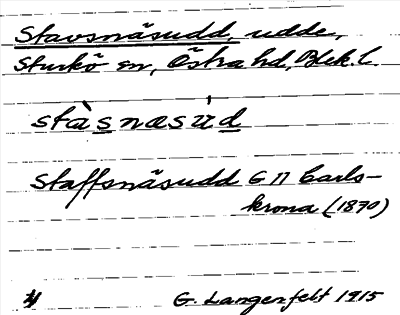 Stavsnäsudd, udde,
Sturkö sn, Östra hd, Blek. l.
stàsnæsu̇d
Staffsnäsudd G Π Carls-
krona (1870)
G. Langenfelt 1915